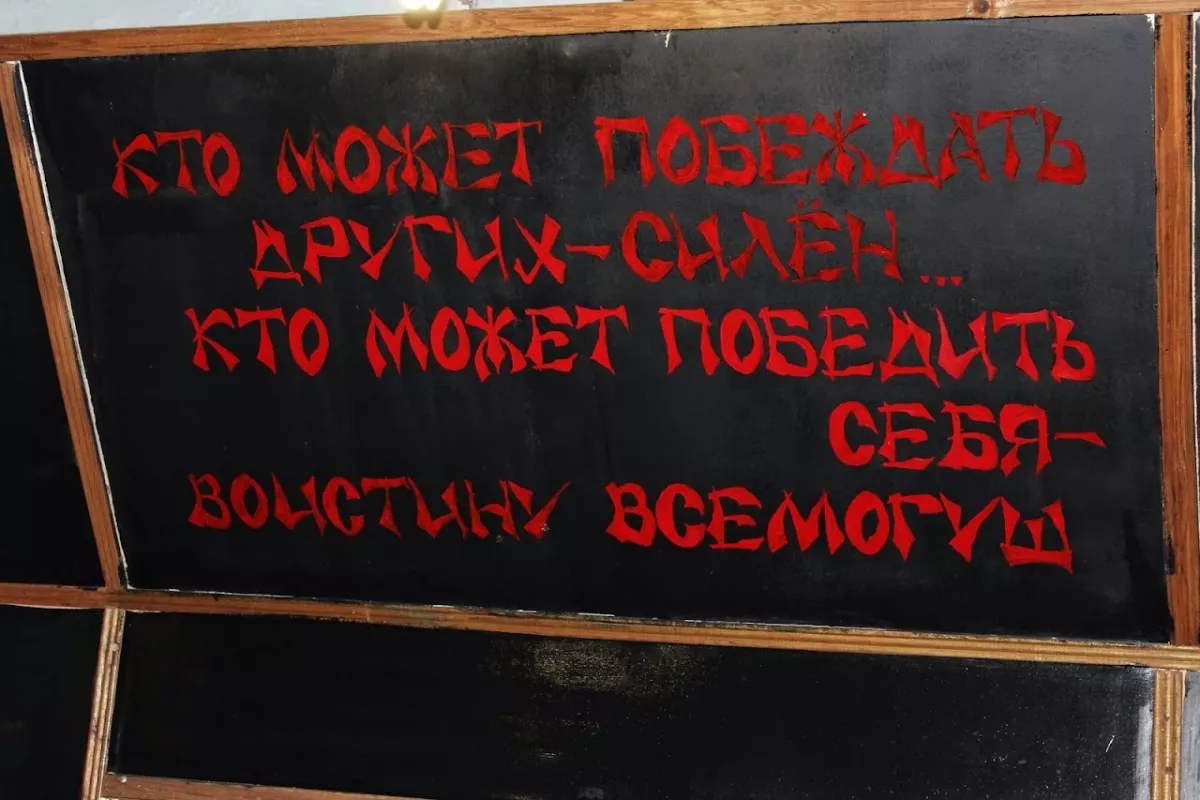 КТО МОЖЕТ ПОБЕЖДАТЬ
ДРУГИХ-СИЛЁН...
КТО МОЖЕТ ПОБЕДИТЬ
СЕБЯ-
ВОИСТИНУ ВСЕМОГУЩ